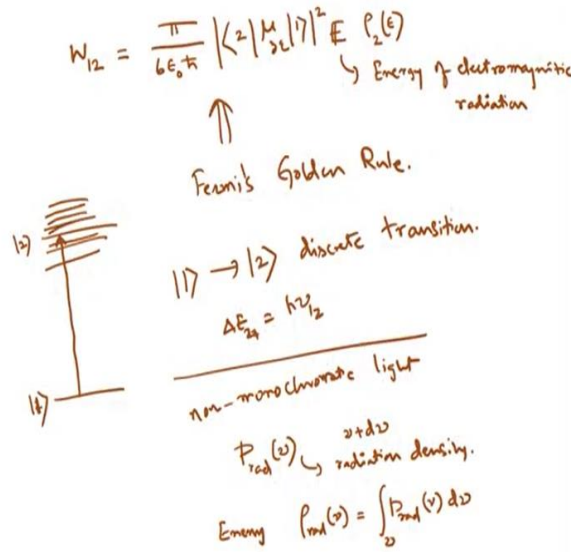 W₁₂ = π/(6ε₀ħ) |⟨2|μ₂₁|1⟩|² E ρ₂(E)
↳ Energy of electromagnetic
radiation
⇑
Fermi's Golden Rule.
|2⟩
|1⟩ → |2⟩ discrete transition.
ΔE₂₁ = hν₁₂
|1⟩
non-monochromatic light
P_rad(ν) ↳ ν+dν
radiation density.
Energy ρ_rad(ν) = ∫_ν P_rad(ν) dν